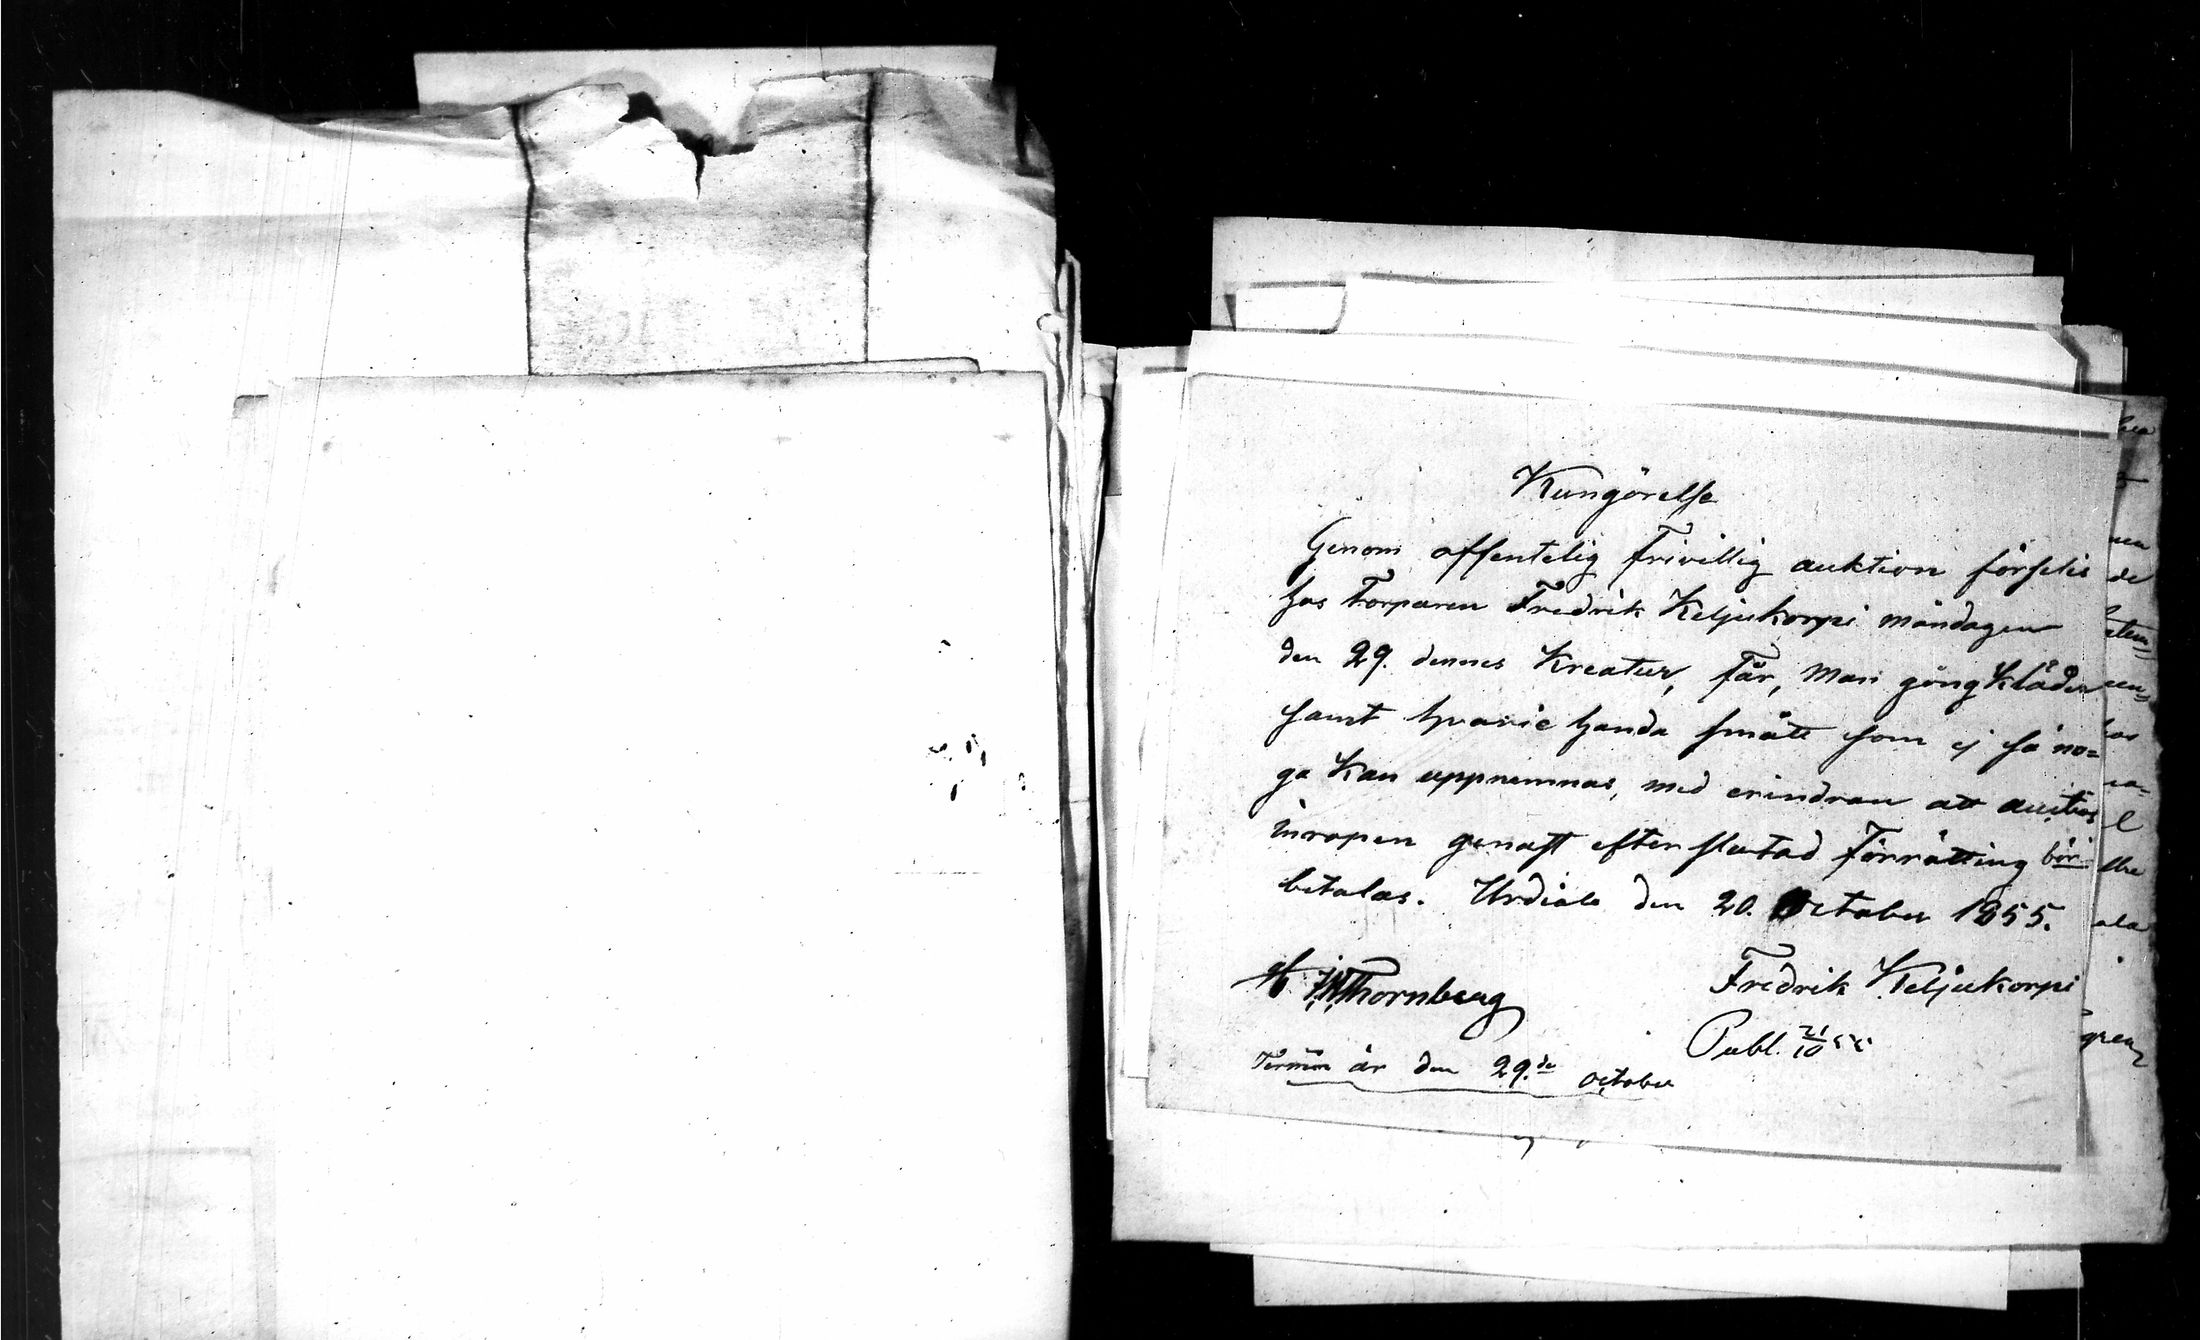 Kungörelse
Genom offentelig frivillig auktion förseljs
hos Torparen Fredrik Keljukorpi måndagen
den 29. dennes Kreatur, Får, Man gångkläder
samt hvarie handa smått som ej så no=
ga kan uppnemnas, med erindran att auctions
inropen genast efter slutad Förrätting bör
betalas. Urdiala den 20. October 1855.
Fredrik Keljukorpi
Thornberg
Publ. 21/10 55
Termin är den 29.de october